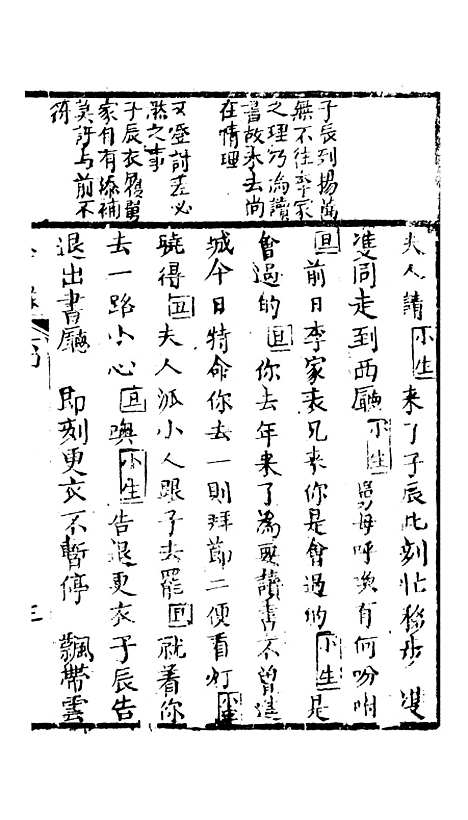 子辰到揚萬
無不往李家
之理乃為讀
書故未去尚
在情理
又登討差必
然之事
子辰衣履萬
家自有添補
莫訝与前不
符
夫人請[小生]来了子辰此刻忙移步 雙
雙同走到西廳[小生]母呼喚有何吩咐
[旦]前日李家表兄来你是會過的[小生]是
會過的[旦]你去年来了為要讀書不曾進
城今日特命你去一則拜節二便看灯[小生]
曉得[丑]夫人派小人跟子去罷[旦]就着你
去一路小心[旦]噢[小生]告退更衣子辰告
退出書廳 即刻更衣不暫停 飄帶雲
三